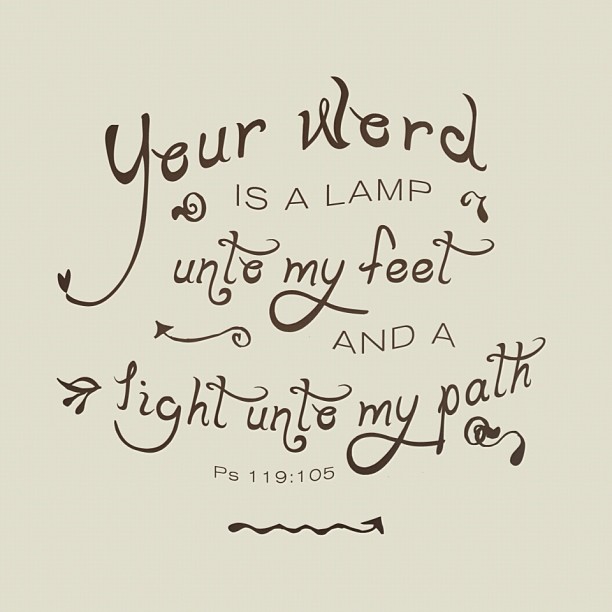 Your Word
IS A LAMP
unto my feet
AND A
light unto my path
Ps 119:105